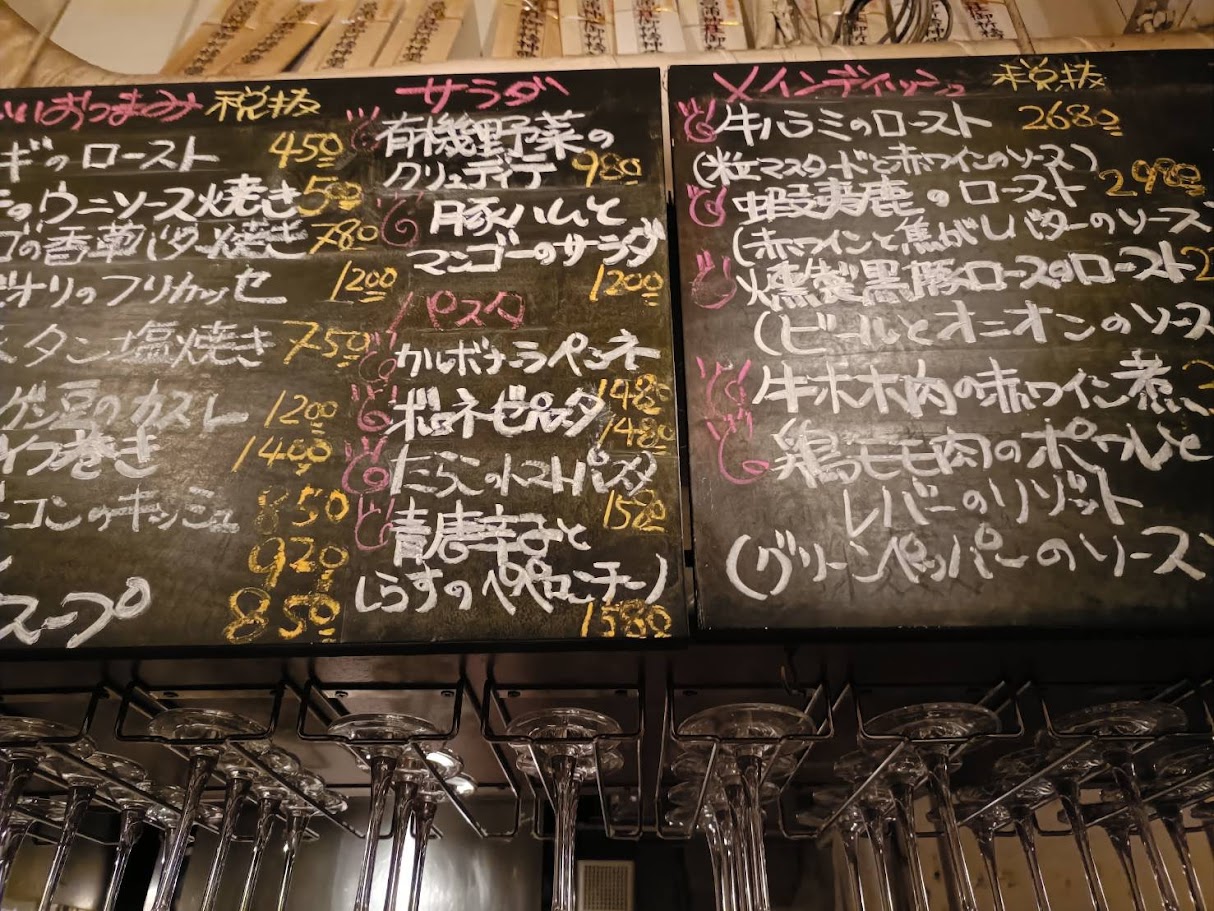 おつまみ 税抜
ギのロースト 450
のウニソース焼き 500
ゴの香草バター焼き 780
オリのフリカッセ 1200
タン塩焼き 750
ゲン豆のカスレ 1200
巻き 1400
コンのキッシュ 850
920
スープ 850
サラダ
有機野菜の
クリュディテ 980
豚ハムと
マンゴーのサラダ
1200
パスタ
カルボナーラペンネ
1480
ボロネーゼパスタ
1480
たらこのトマトパスタ
1580
青唐辛子と
しらすのペペロンチーノ
1580
メインディッシュ 税抜
牛ハラミのロースト 2680
(粒マスタードと赤ワインのソース)
蝦夷鹿のロースト 2980
(赤ワインと焦がしバターのソース
燻製黒豚ロースのロースト
(ビールとオニオンのソース
牛ホホ肉の赤ワイン煮
鶏モモ肉のポワレと
レバーのリゾット
(グリーンペッパーのソース